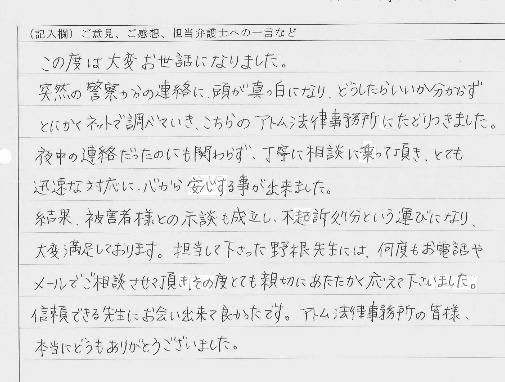 (記入欄) ご意見、ご感想、担当弁護士への一言など
この度は大変お世話になりました。
突然の警察からの連絡に、頭が真っ白になり、どうしたらいいか分からず
とにかくネットで調べていき、こちらのアトム法律事務所にたどりつきました。
夜中の連絡だったのにも関わらず、丁寧に相談に乗って頂き、とても
迅速な対応に、心から安心する事が出来ました。
結果、被害者様との示談も成立し、不起訴処分という運びになり、
大変満足しております。担当して下さった野根先生には、何度もお電話や
メールでご相談させて頂きその度とても親切にあたたかく応えて下さいました。
信頼できる先生にお会い出来て良かったです。アトム法律事務所の皆様、
本当にどうもありがとうございました。